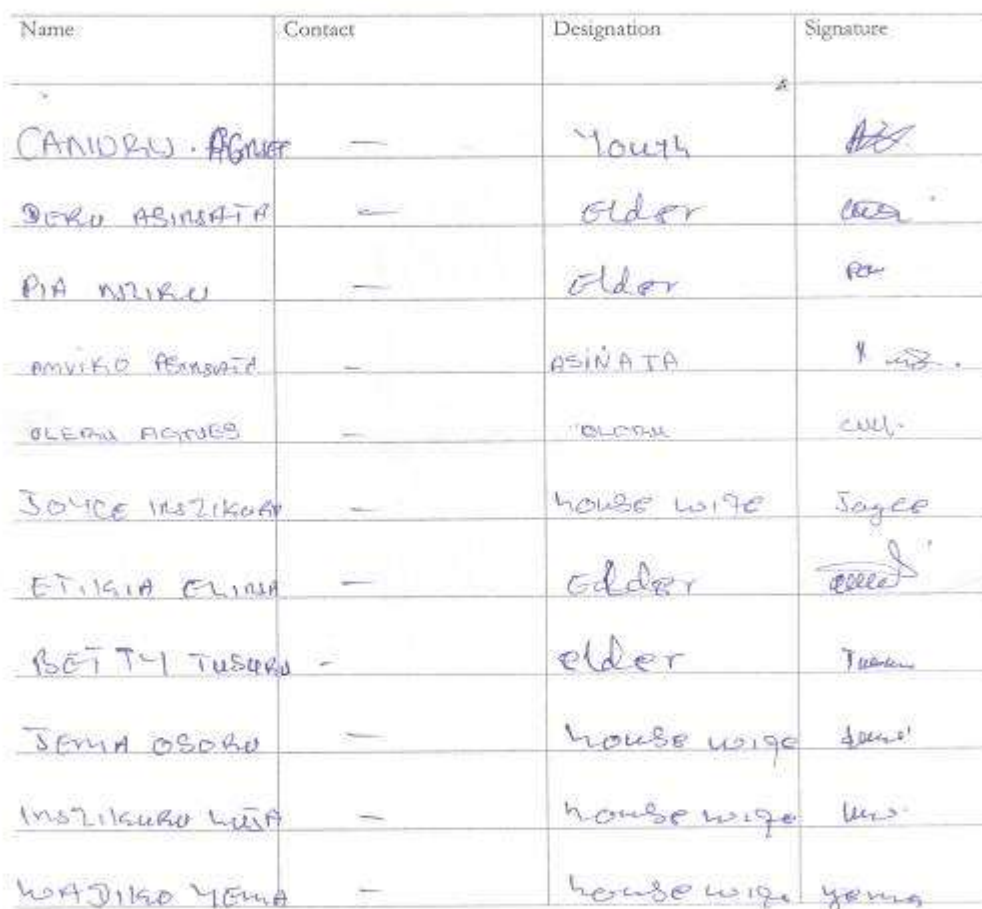 Name Contact Designation Signature
CANDRU. AGNEE — Youth
DERU ASINSATA — Elder
PIA NZIRU — Elder
AMVIKO — ASINATA
OLERU AGNES — OLERU
JOYCE INSZIKURU — house wife Joyce
ETIKIA ELINSA — Elder
BETTY TUSURU - elder
JEMA OSORU — house wife
INSZIKURU — house wife
WADIKO YEMA — house wife yema